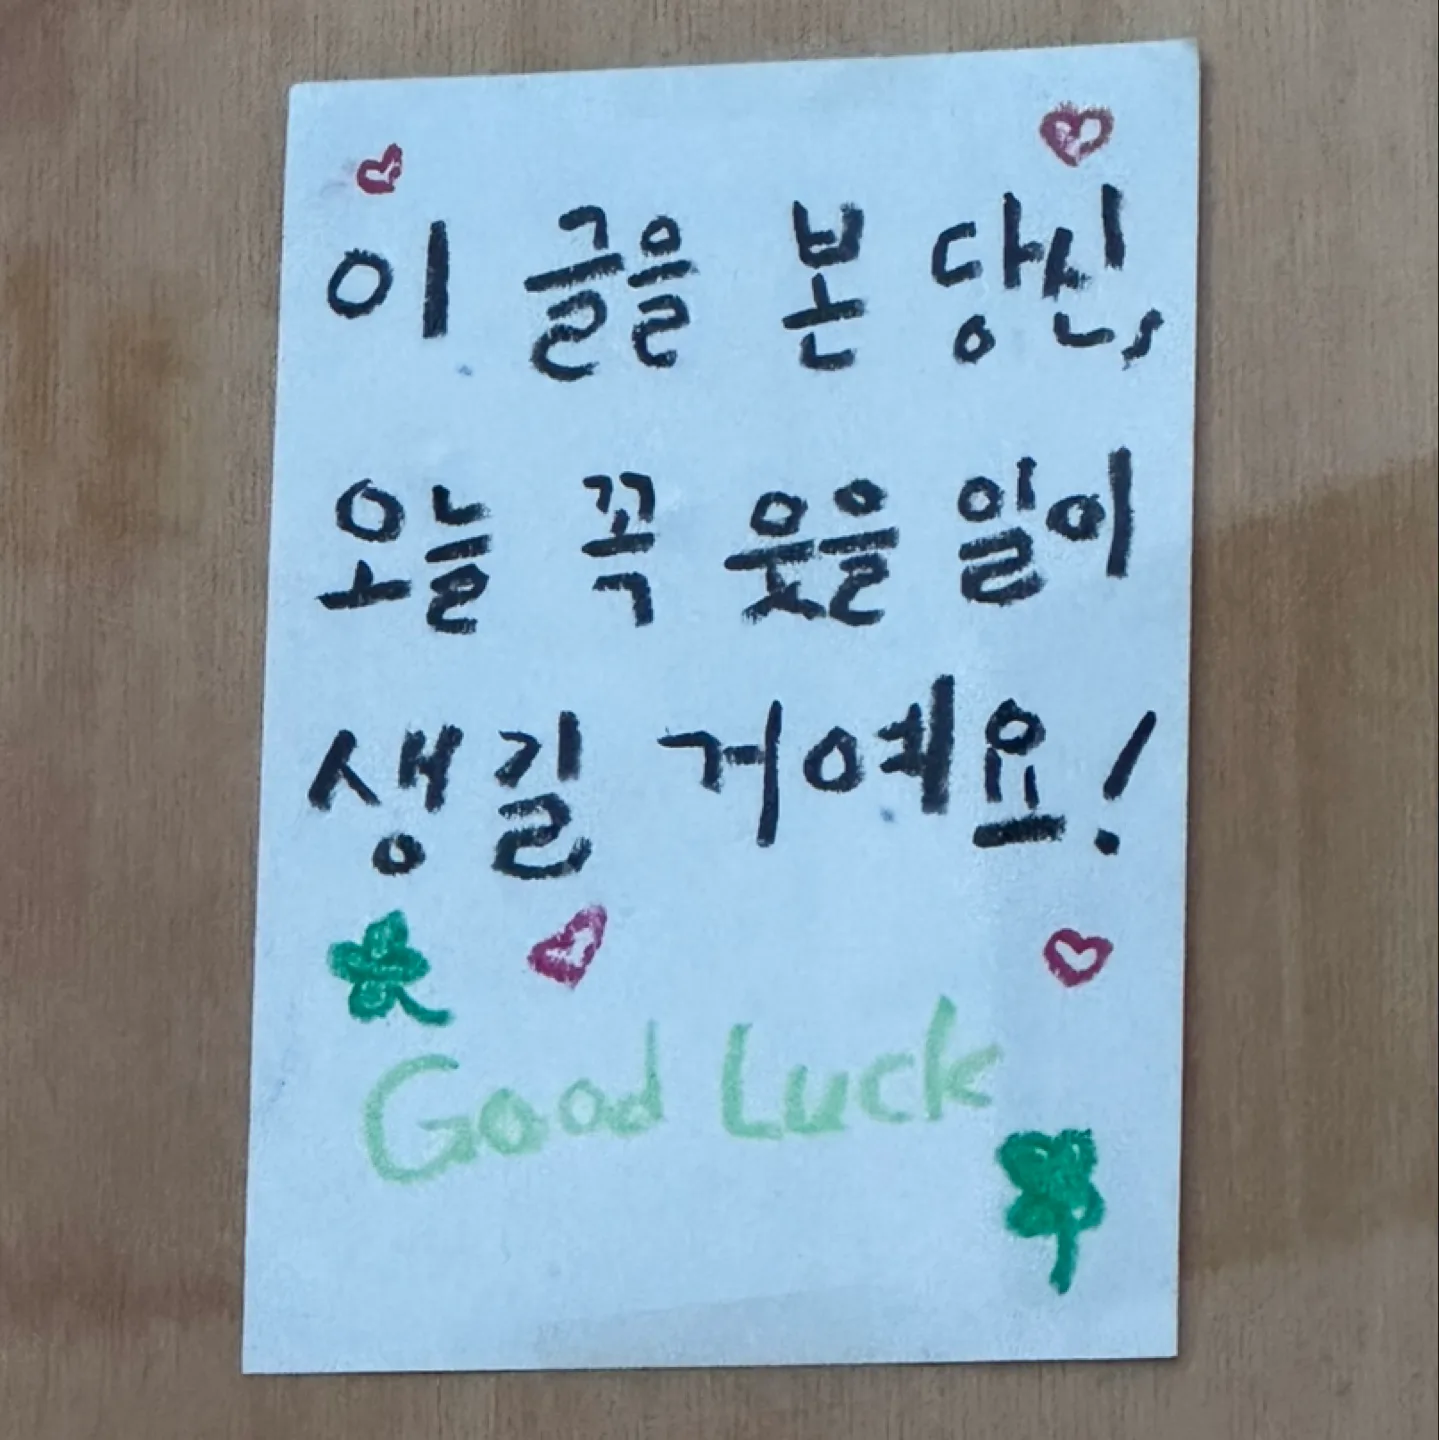 이 글을 본 당신,
오늘 꼭 웃을 일이
생길 거예요!
Good Luck